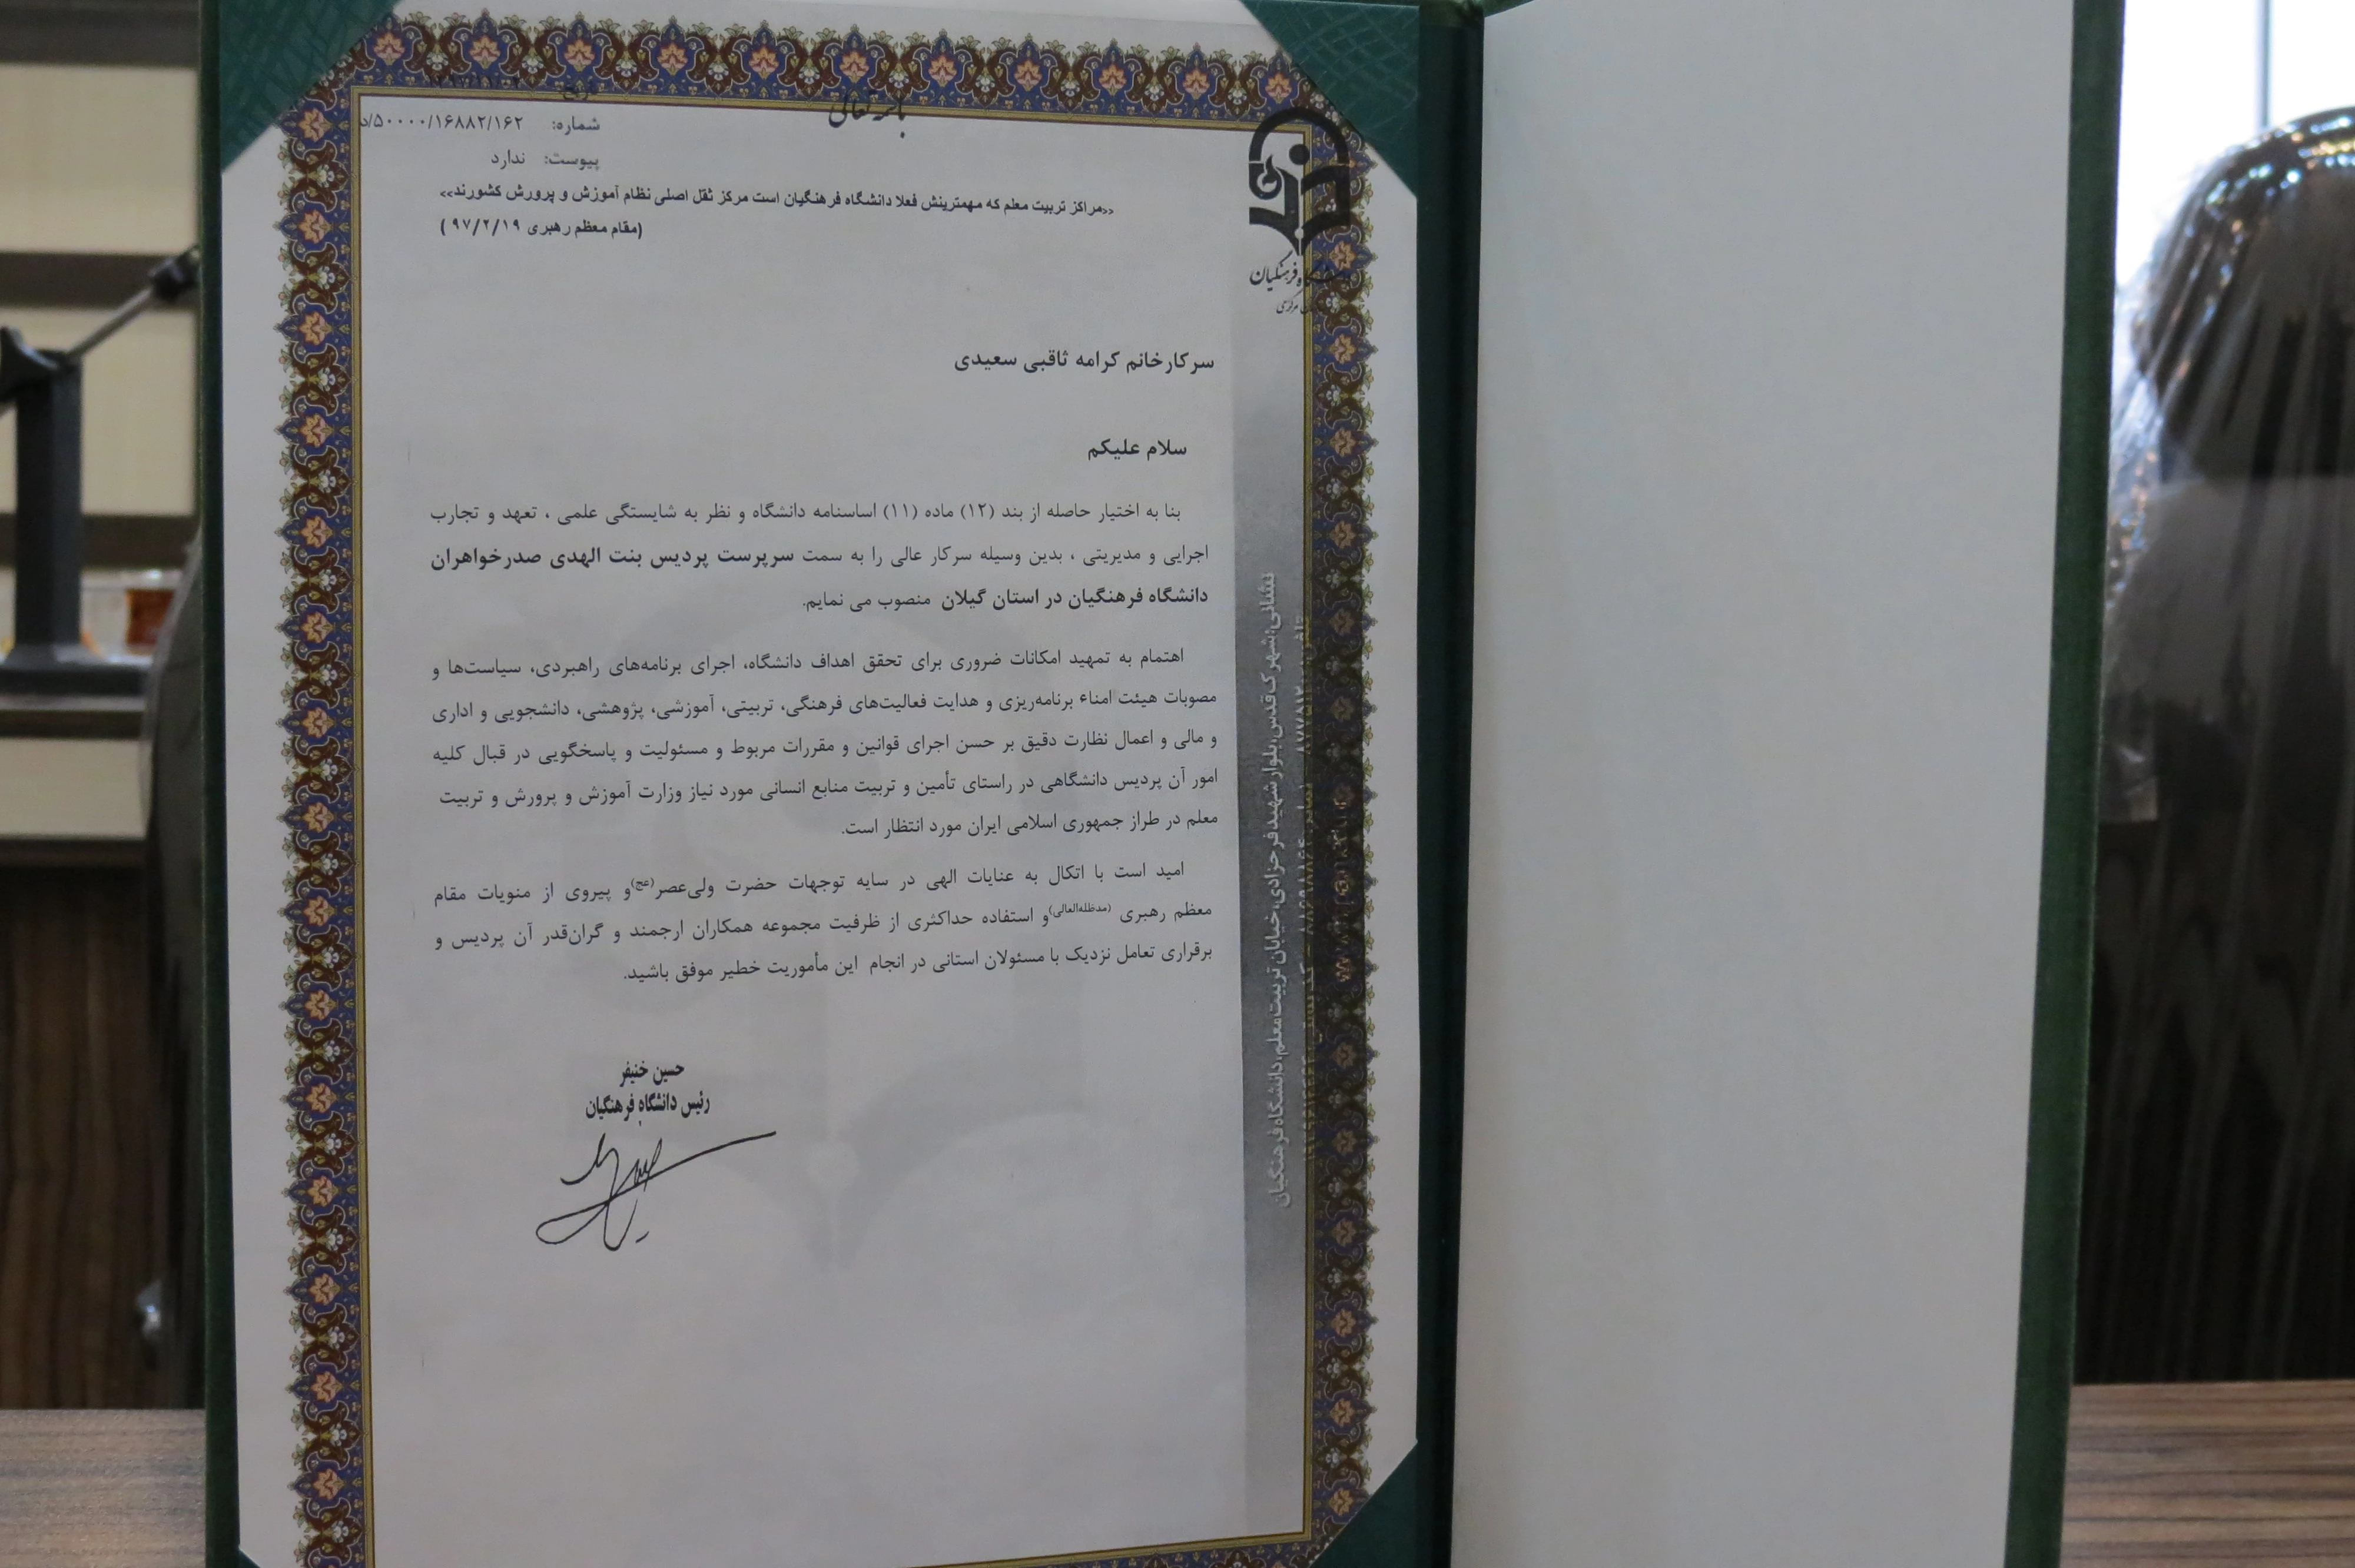 باسمه تعالی
شماره: ۵۰۰۰۰/۱۶۸۸۲/۱۶۲/د
پیوست: ندارد
<<مراکز تربیت معلم که مهمترینش فعلا دانشگاه فرهنگیان است مرکز ثقل اصلی نظام آموزش و پرورش کشورند>>
(مقام معظم رهبری ۹۷/۲/۱۹ )
فرهنگیان
سرکارخانم کرامه ثاقبی سعیدی
سلام علیکم
بنا به اختیار حاصله از بند (۱۲) ماده (۱۱) اساسنامه دانشگاه و نظر به شایستگی علمی ، تعهد و تجارب
اجرایی و مدیریتی ، بدین وسیله سرکار عالی را به سمت سرپرست پردیس بنت الهدی صدرخواهران
دانشگاه فرهنگیان در استان گیلان منصوب می نمایم.
اهتمام به تمهید امکانات ضروری برای تحقق اهداف دانشگاه، اجرای برنامه‌های راهبردی، سیاست‌ها و
مصوبات هیئت امناء برنامه‌ریزی و هدایت فعالیت‌های فرهنگی، تربیتی، آموزشی، پژوهشی، دانشجویی و اداری
و مالی و اعمال نظارت دقیق بر حسن اجرای قوانین و مقررات مربوط و مسئولیت و پاسخگویی در قبال کلیه
امور آن پردیس دانشگاهی در راستای تأمین و تربیت منابع انسانی مورد نیاز وزارت آموزش و پرورش و تربیت
معلم در طراز جمهوری اسلامی ایران مورد انتظار است.
امید است با اتکال به عنایات الهی در سایه توجهات حضرت ولی‌عصر(عج)و پیروی از منویات مقام
معظم رهبری (مدظله‌العالی)و استفاده حداکثری از ظرفیت مجموعه همکاران ارجمند و گران‌قدر آن پردیس و
برقراری تعامل نزدیک با مسئولان استانی در انجام این مأموریت خطیر موفق باشید.
حسین خنیفر
رئیس دانشگاه فرهنگیان
نشانی:شهرک‌قدس،بلوار شهیدفرحزادی،خیابان تربیت‌معلم،دانشگاه‌فرهنگیان